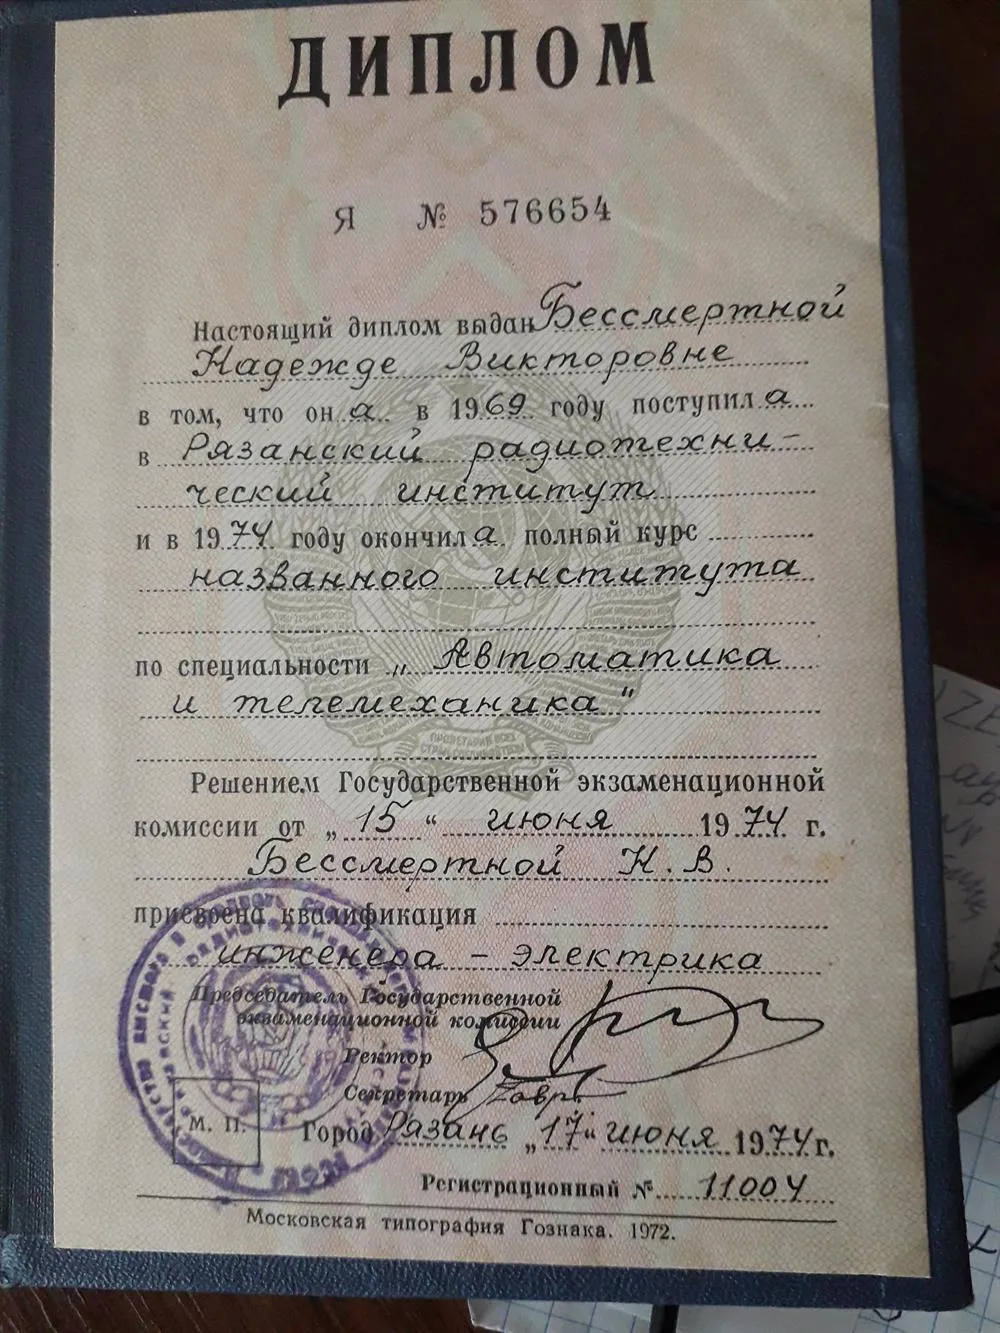 ДИПЛОМ
Я № 576654
Настоящий диплом выдан Бессмертной
Надежде Викторовне
в том, что он а в 1969 году поступил а
в Рязанский радиотехни-
ческий институт
и в 1974 году окончил а полный курс
названного института
по специальности „Автоматика
и телемеханика"
Решением Государственной экзаменационной
комиссии от „15" июня 1974 г.
Бессмертной Н.В.
присвоена квалификация
инженера - электрика
Председатель Государственной
экзаменационной комиссии
Ректор
Секретарь
М. П.
Город Рязань „17" июня 1974 г.
Регистрационный № 11004
Московская типография Гознака. 1972.